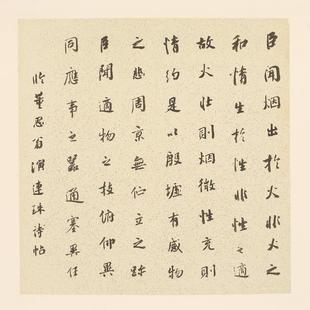 臣聞烟出於火非火之
和情生於性非性之適
故火壮則烟微性充則
情約是以殷墟有感物
之悲周京無佇立之跡
臣聞適物之技俯仰異
同應事之器通塞異任
臨董思翁演連珠詩帖